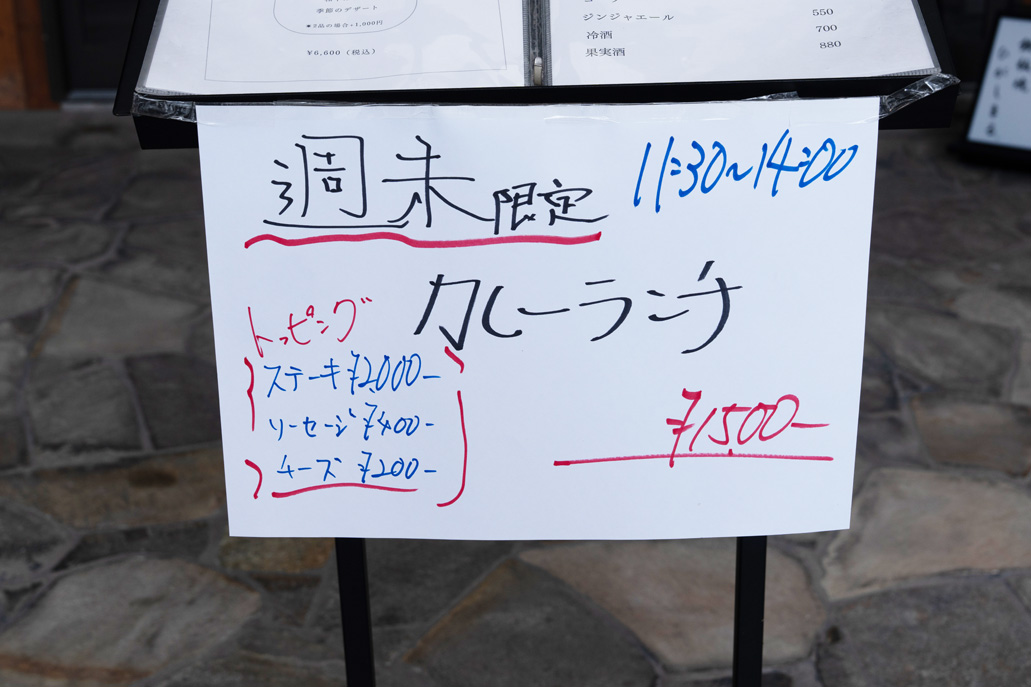 季節のデザート
￥6,600（税込）
ジンジャエール 550
冷酒 700
果実酒 880
週末限定
11:30～14:00
カレーランチ
トッピング
ステーキ ¥2,000-
ソーセージ ¥400-
チーズ ¥200-
¥1,500-